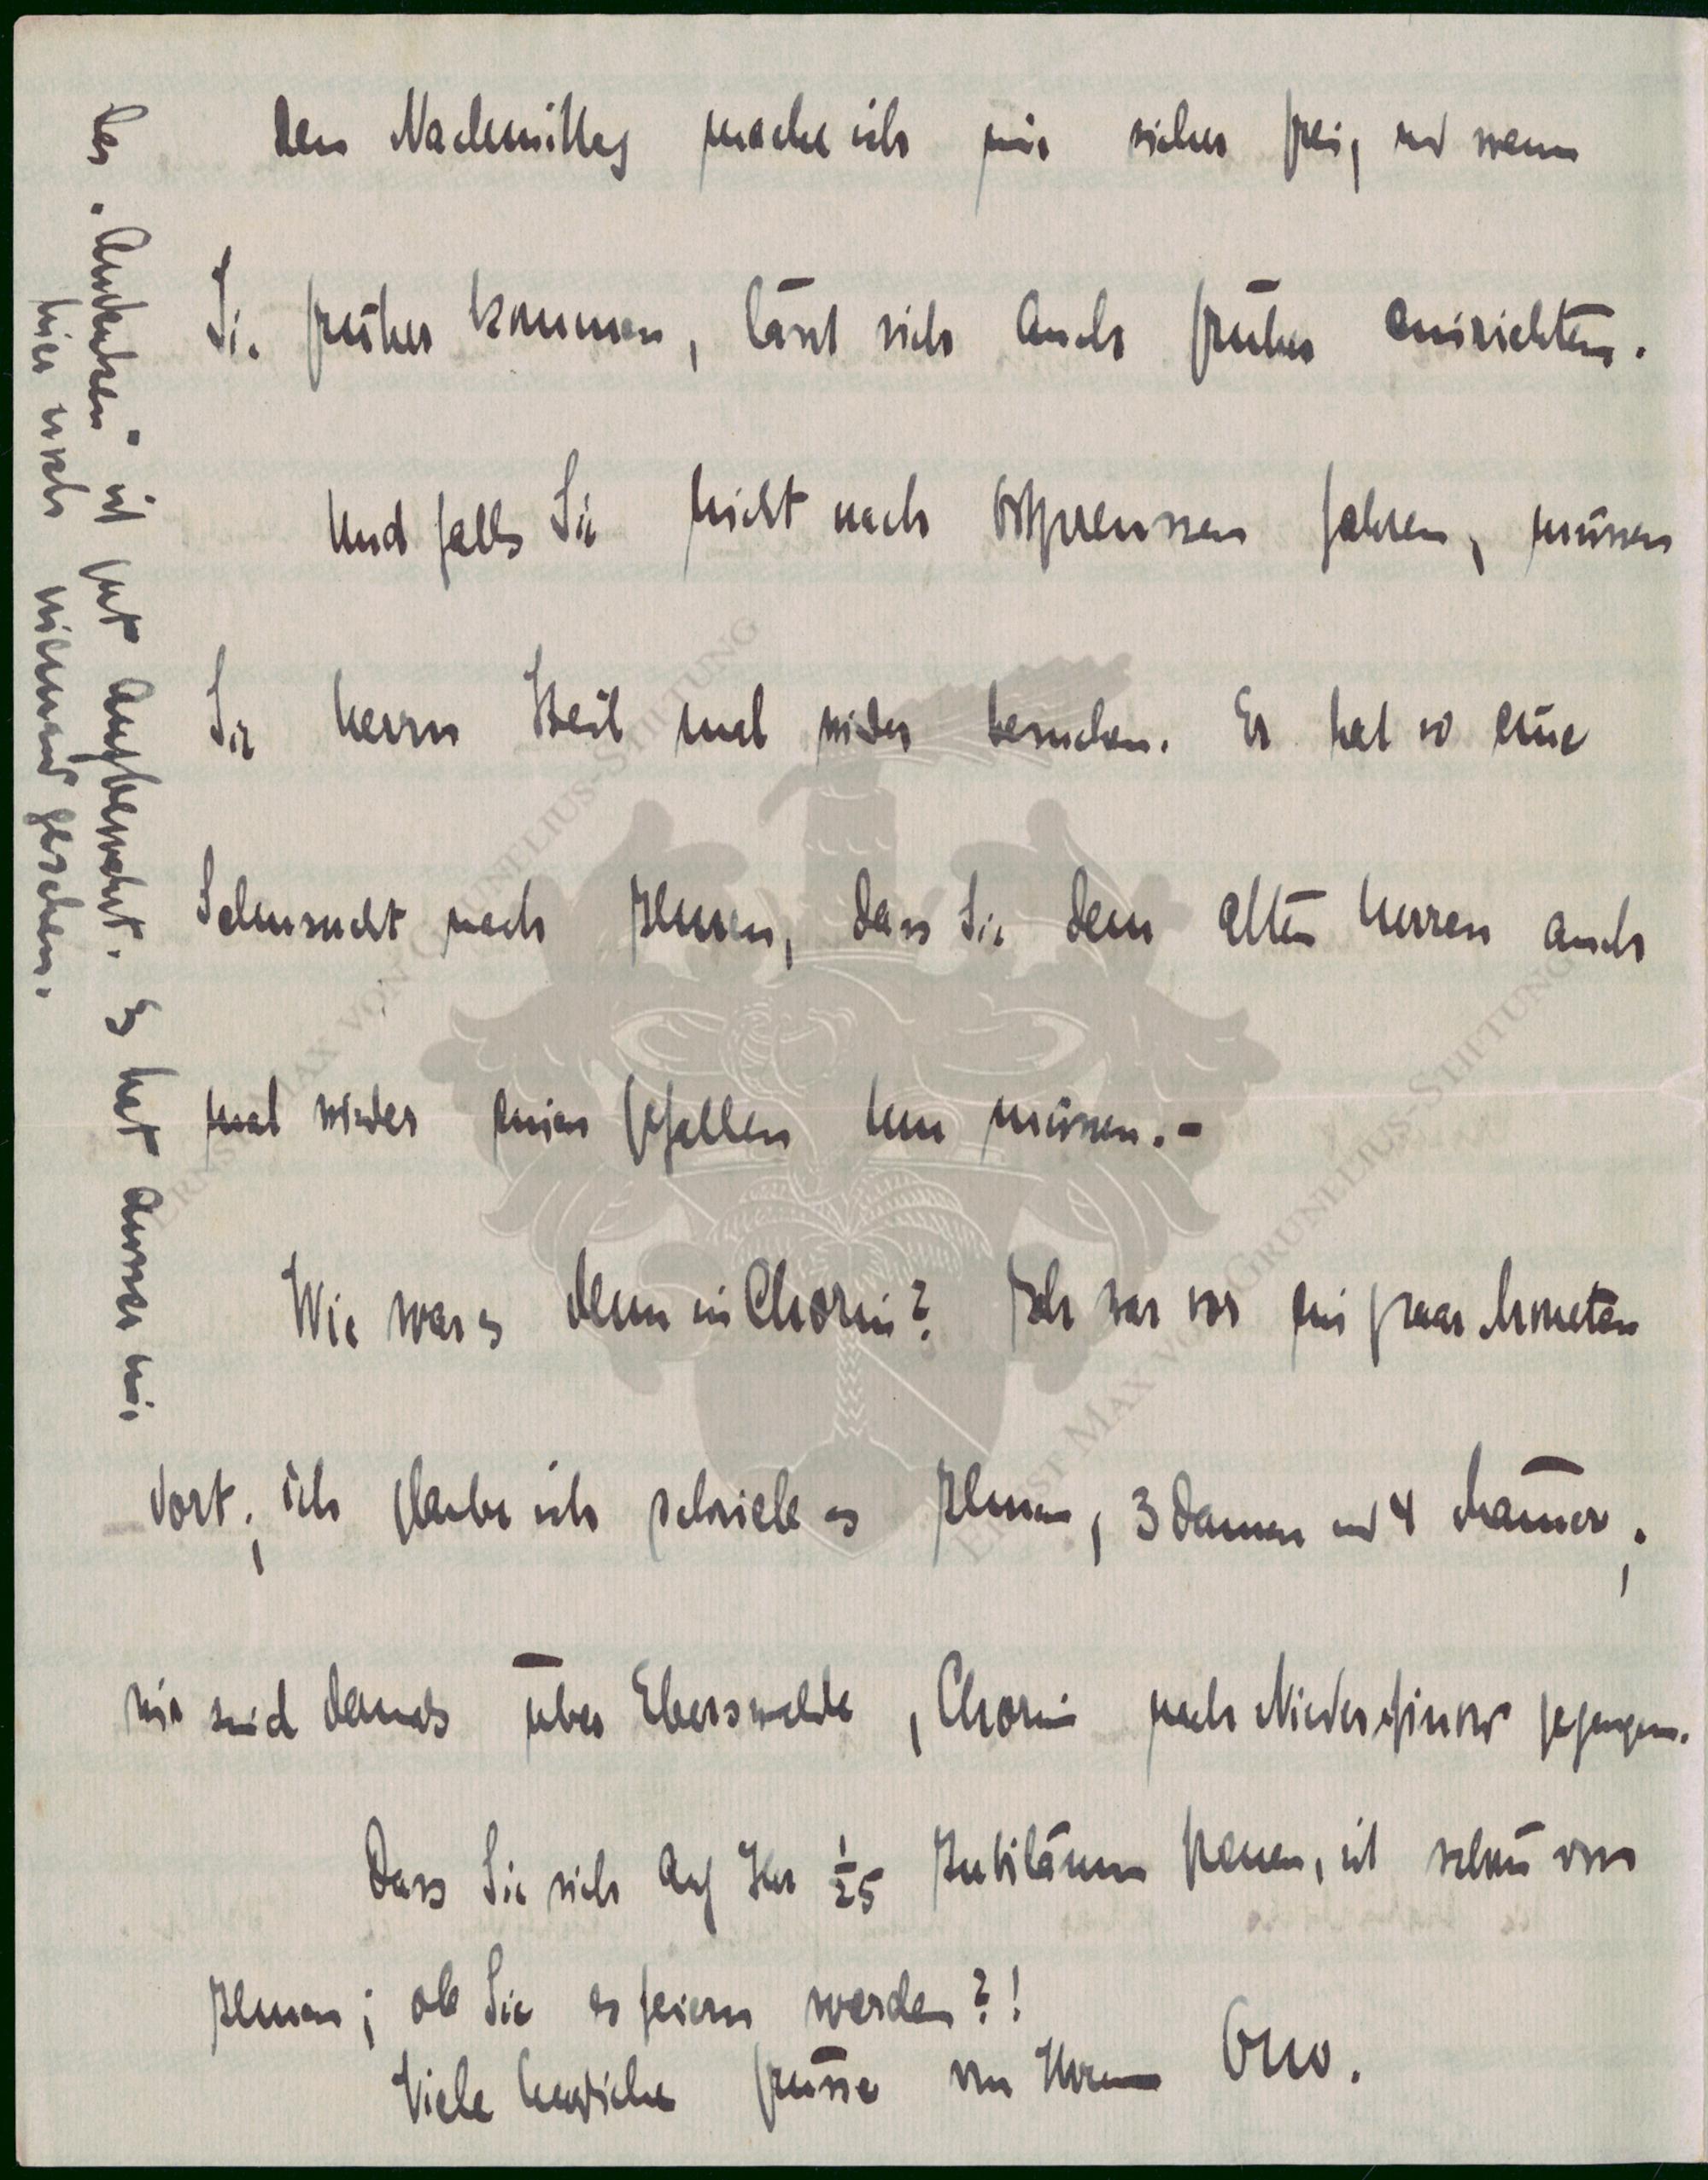 den Nachmittag mache ich mir sicher frei, und wenn
Sie früher kommen, lässt sich auch früher einrichten.
Und falls Sie nicht nach Ostpreussen fahren, müssen
Sie Herrn Keil mal wieder besuchen. Er hat so eine
Sehnsucht nach Ihnen, dass Sie dem alten Herren auch
mal wieder einen Gefallen tun müssen.-
Wie war es denn in Chorin? Ich war vor ein paar Monaten
dort; ich glaube ich schrieb es Ihnen, 3 Damen und 4 Männer;
wir sind damals über Eberswalde, Chorin nach Niederfinow gegangen.
Dass Sie sich auf Ihr 1/25 Jubiläum freuen, ist schön von
Ihnen; ob Sie es feiern werden?!
Viele herzliche Grüsse von Ihrem Otto.
Das "Andenken" ist gut aufbewahrt. Es hat ausser mir
hier noch niemand gesehen.
ERNST MAX VON GRUNELIUS-STIFTUNG
ERNST MAX VON GRUNELIUS-STIFTUNG